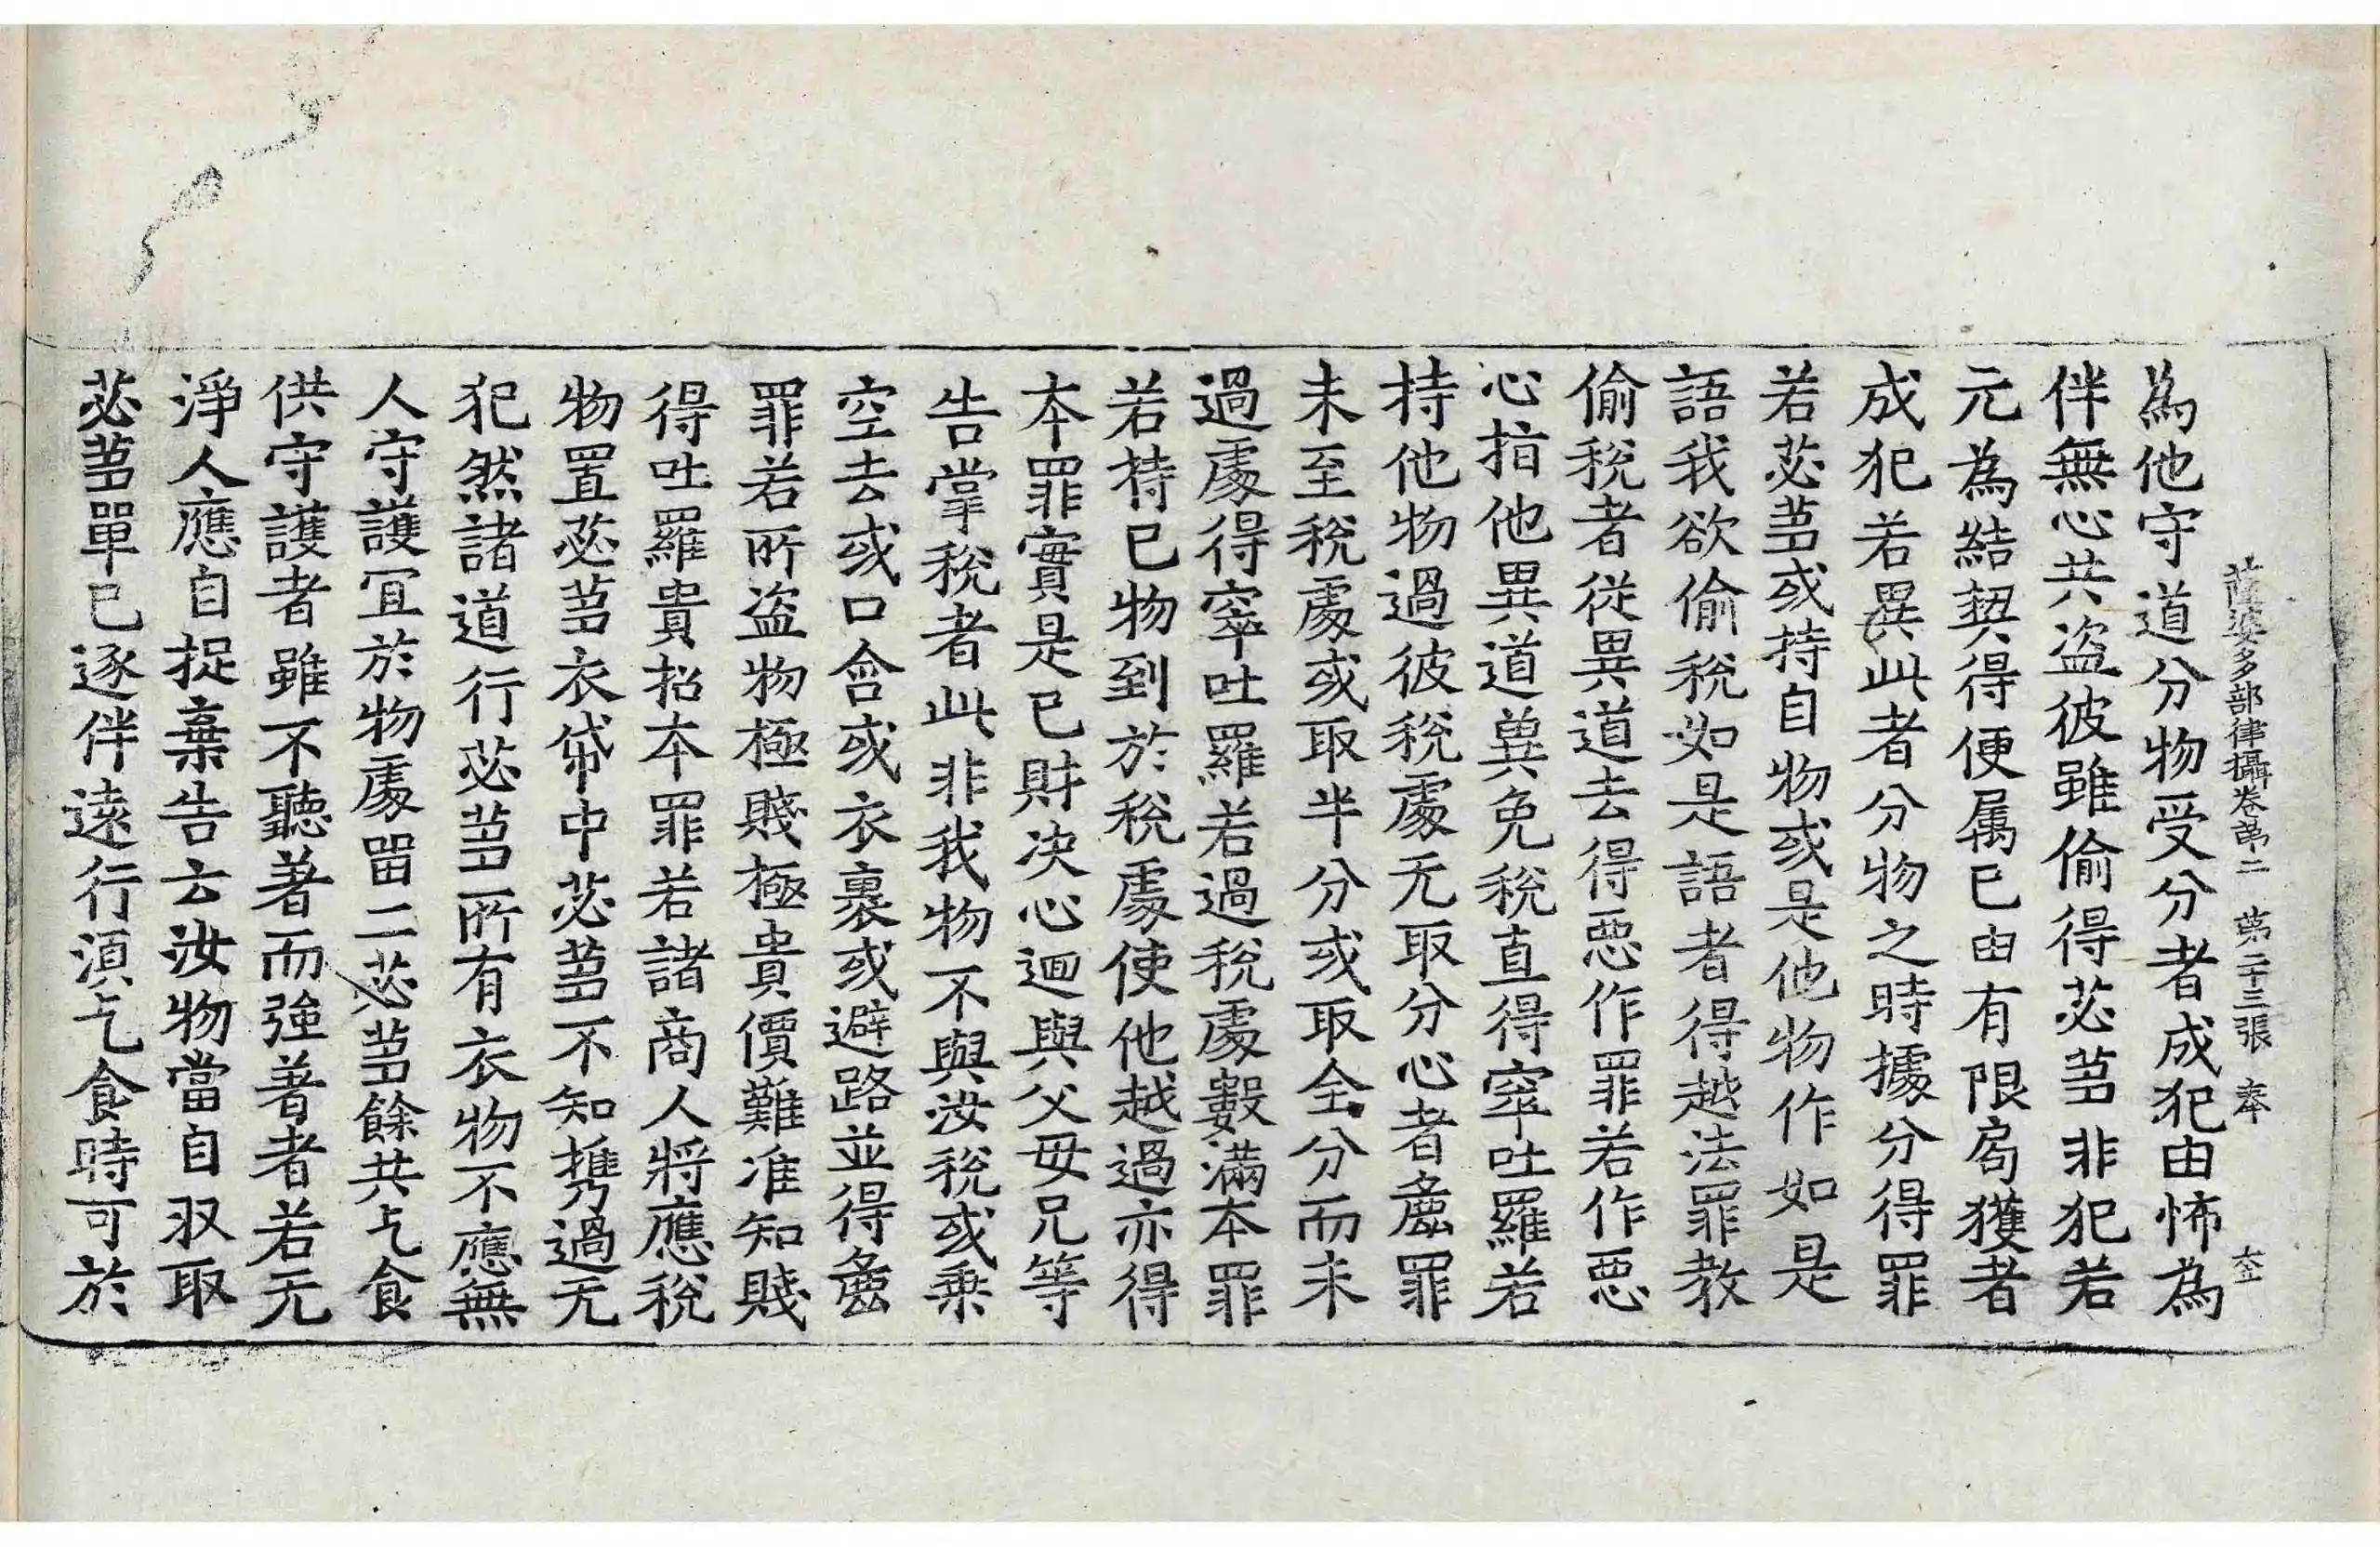 薩婆多部律攝卷第二 第二十三張 本
為他守道分物受分者成犯由怖為
伴無心共盜彼雖偷得苾芻非犯若
元為結契得便屬已由有限局獲者
成犯若異此者分物之時據分得罪
若苾芻或持自物或是他物作如是
語我欲偷稅如是語者得越法罪教
偷稅者從異道去得惡作罪若作惡
心指他異道兾免稅直得窣吐羅若
持他物過彼稅處无取分心者麁罪
未至稅處或取半分或取全分而未
過處得窣吐羅若過稅處數滿本罪
若持已物到於稅處使他越過亦得
本罪實是已財決心迴與父母兄等
告掌稅者此非我物不與汝稅或乗
空去或口含或衣裹或避路並得麁
罪若所盜物極賤極貴價難准知賤
得吐羅貴招本罪若諸商人將應稅
物置苾芻衣帒中苾芻不知擕過无
犯然諸道行苾芻所有衣物不應無
人守護冝於物處留二苾芻餘共乞食
供守護者雖不聽著而強著者若无
淨人應自捉棄告云汝物當自収取
苾芻單已逐伴遠行湏乞食時可於